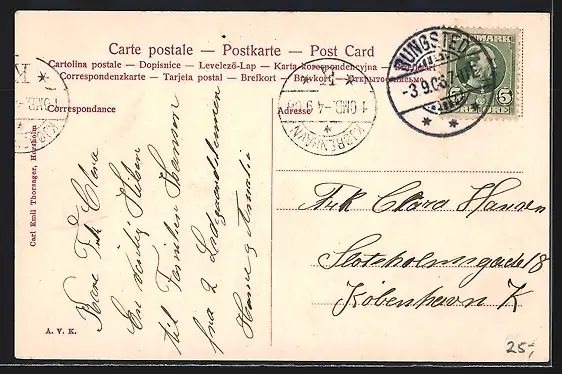 Carte postale — Postkarte — Post Card
Cartolina postale — Dopisnice — Levelező-Lap — Karta korespondencyjna
Correspondenzkarte — Tarjeta postal — Brefkort — Brevkort
Correspondance
Adresse
RUNGSTED
-3.9.06.7-
KJØBENHAVN
1.OMB. 4-9 06
DANMARK
5 ØRE 5
Kære Frk Clara
En venlig Hilsen
til Familien Hansen
fra 2 Lods
Hanne & Amalie
Frk Clara Hansen
Slotsholmsgade 18
København K
Carl Emil Thornager, Hørsholm
A. V. K.
25,-